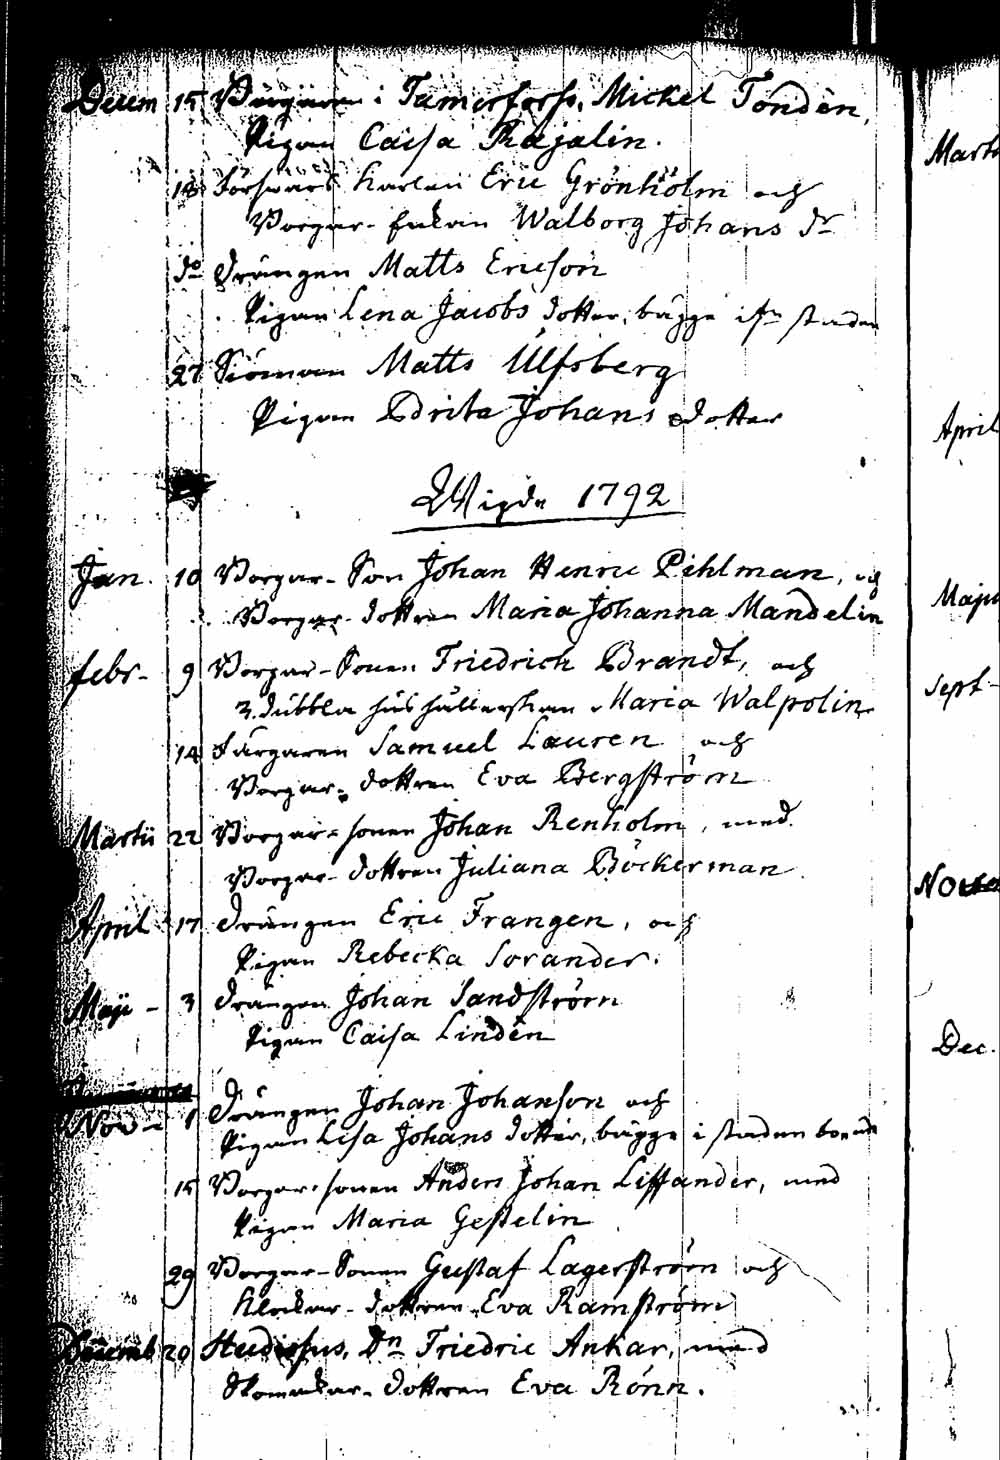 Decem 15 Borgaren i Tamerforss, Mickel Tondén,
Pigan Caisa Rajalin.
18 Försvars Karlen Eric Grönholm och
Borgar-Enkan Walborg Johans dr
do Drängen Matts Ericson
Pigan Lena Jacobs dotter, bägge ifrn staden
27 Siöman Matts Ulfsberg
Pigan Brita Johans dotter
Wigde 1792
Jan. 10 Borgar-Son Johan Henric Pihlman, och
Borgar-dottren Maria Johanna Mandelin
Febr- 9 Borgar-Sonen Friedrich Brandt, och
hushållerskan Maria Walpolin
14 Färgaren Samuel Lauren och
Borgar-dottren Eva Bergström
Martii 22 Borgar-sonen Johan Renholm, med
Borgar-dottren Juliana Böckerman
April 17 Drängen Eric Frangen, och
Pigan Rebecka Sorander.
Maji - 3 Drängen Johan Sandström
Pigan Caisa Lindén
Nov- 1 Drängen Johan Johanson och
Pigan Lisa Johans dotter, bägge i staden boende
15 Borgar-sonen Anders Johan Lissander, med
Pigan Maria Gestelin
29 Borgar-Sonen Gustaf Lagerström och
Klockar-dottren Eva Ramström
Decemb 20 Studiosus, Dn Friedric Ankar, med
Skomakar-dottren Eva Rönn.
Marti
April
Maju
Sept-
Nov
Dec.